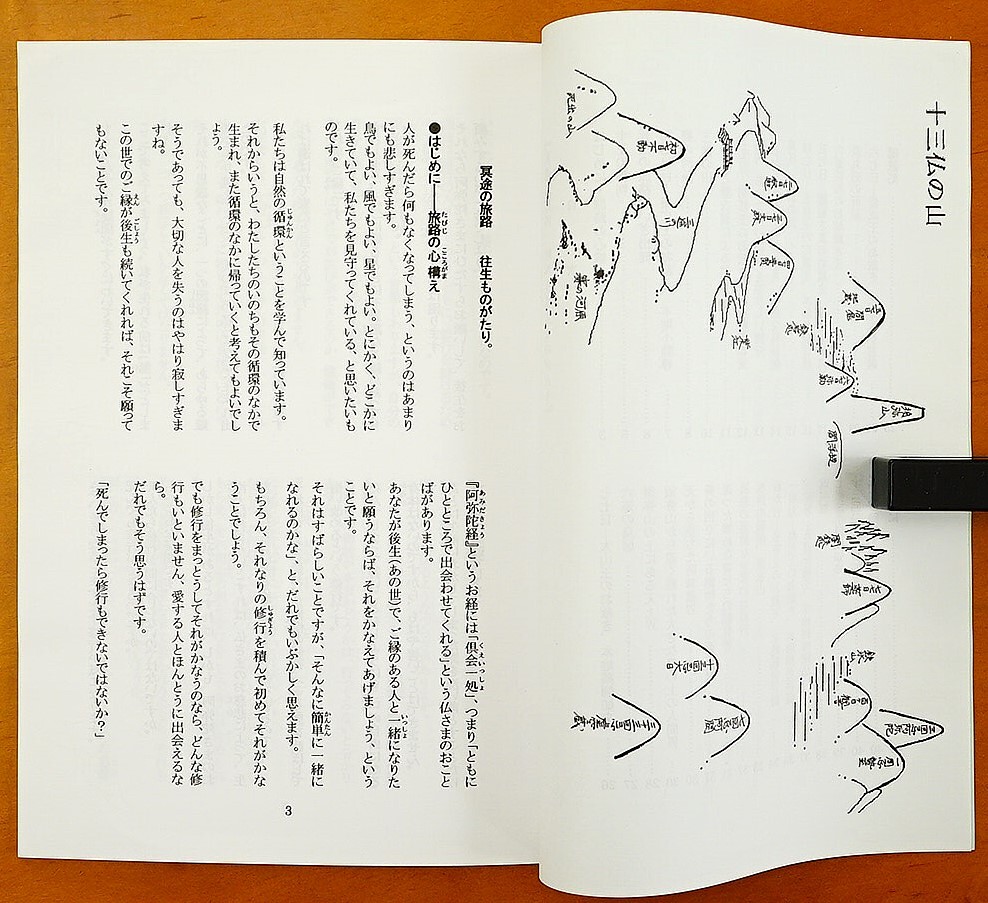 十三仏の山
死出の山
初七日不動
三途の川
賽の河原
二七日釈迦
三七日文殊
四七日普賢
五七日閻魔
地蔵
六七日弥勒
須弥山
閻浮提
七七日薬師
百ヶ日観音
一周忌勢至
三回忌阿弥陀
七回忌阿閦
十三回忌大日
三十三回忌虚空蔵
冥途の旅路　往生ものがたり。
●はじめに――旅路の心構え
人が死んだら何もなくなってしまう、というのはあまり
にも悲しすぎます。
鳥でもよい、風でもよい、星でもよい。とにかく、どこかに
生きていて、私たちを見守ってくれている、と思いたいも
のです。
私たちは自然の循環ということを学んで知っています。
それからいうと、わたしたちのいのちもその循環のなかで
生まれ、また循環のなかに帰っていくと考えてもよいでし
ょう。
そうであっても、大切な人を失うのはやはり寂しすぎま
すね。
この世でのご縁が後生も続いてくれれば、それこそ願って
もないことです。
『阿弥陀経』というお経には「倶会一処」、つまり「ともに
ひとところで出会わせてくれる」という仏さまのおこと
ばがあります。
あなたが後生(あの世)で、ご縁のある人と一緒になりた
いと願うならば、それをかなえてあげましょう、という
ことです。
それはすばらしいことですが、「そんなに簡単に一緒に
なれるのかな」、と、だれでもいぶかしく思えます。
もちろん、それなりの修行を積んで初めてそれがかな
うことでしょう。
でも修行をまっとうしてそれがかなうのなら、どんな修
行もいといません、愛する人とほんとうに出会えるな
ら。
だれでもそう思うはずです。
「死んでしまったら修行もできないではないか?」
3